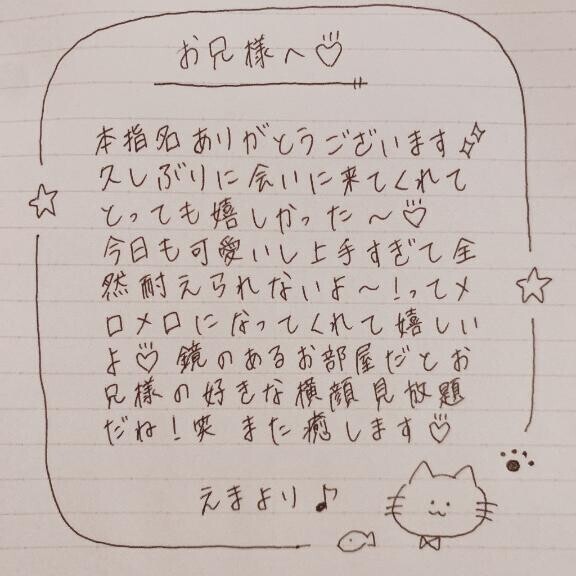 お兄様へ♡
本指名ありがとうございます✨
久しぶりに会いに来てくれて
とっても嬉しかった〜♡
今日も可愛いし上手すぎて全
然耐えられないよ〜!ってメ
ロメロになってくれて嬉しい
よ♡ 鏡のあるお部屋だとお
兄様の好きな横顔見放題
だね!笑 また癒します♡
えまより♪